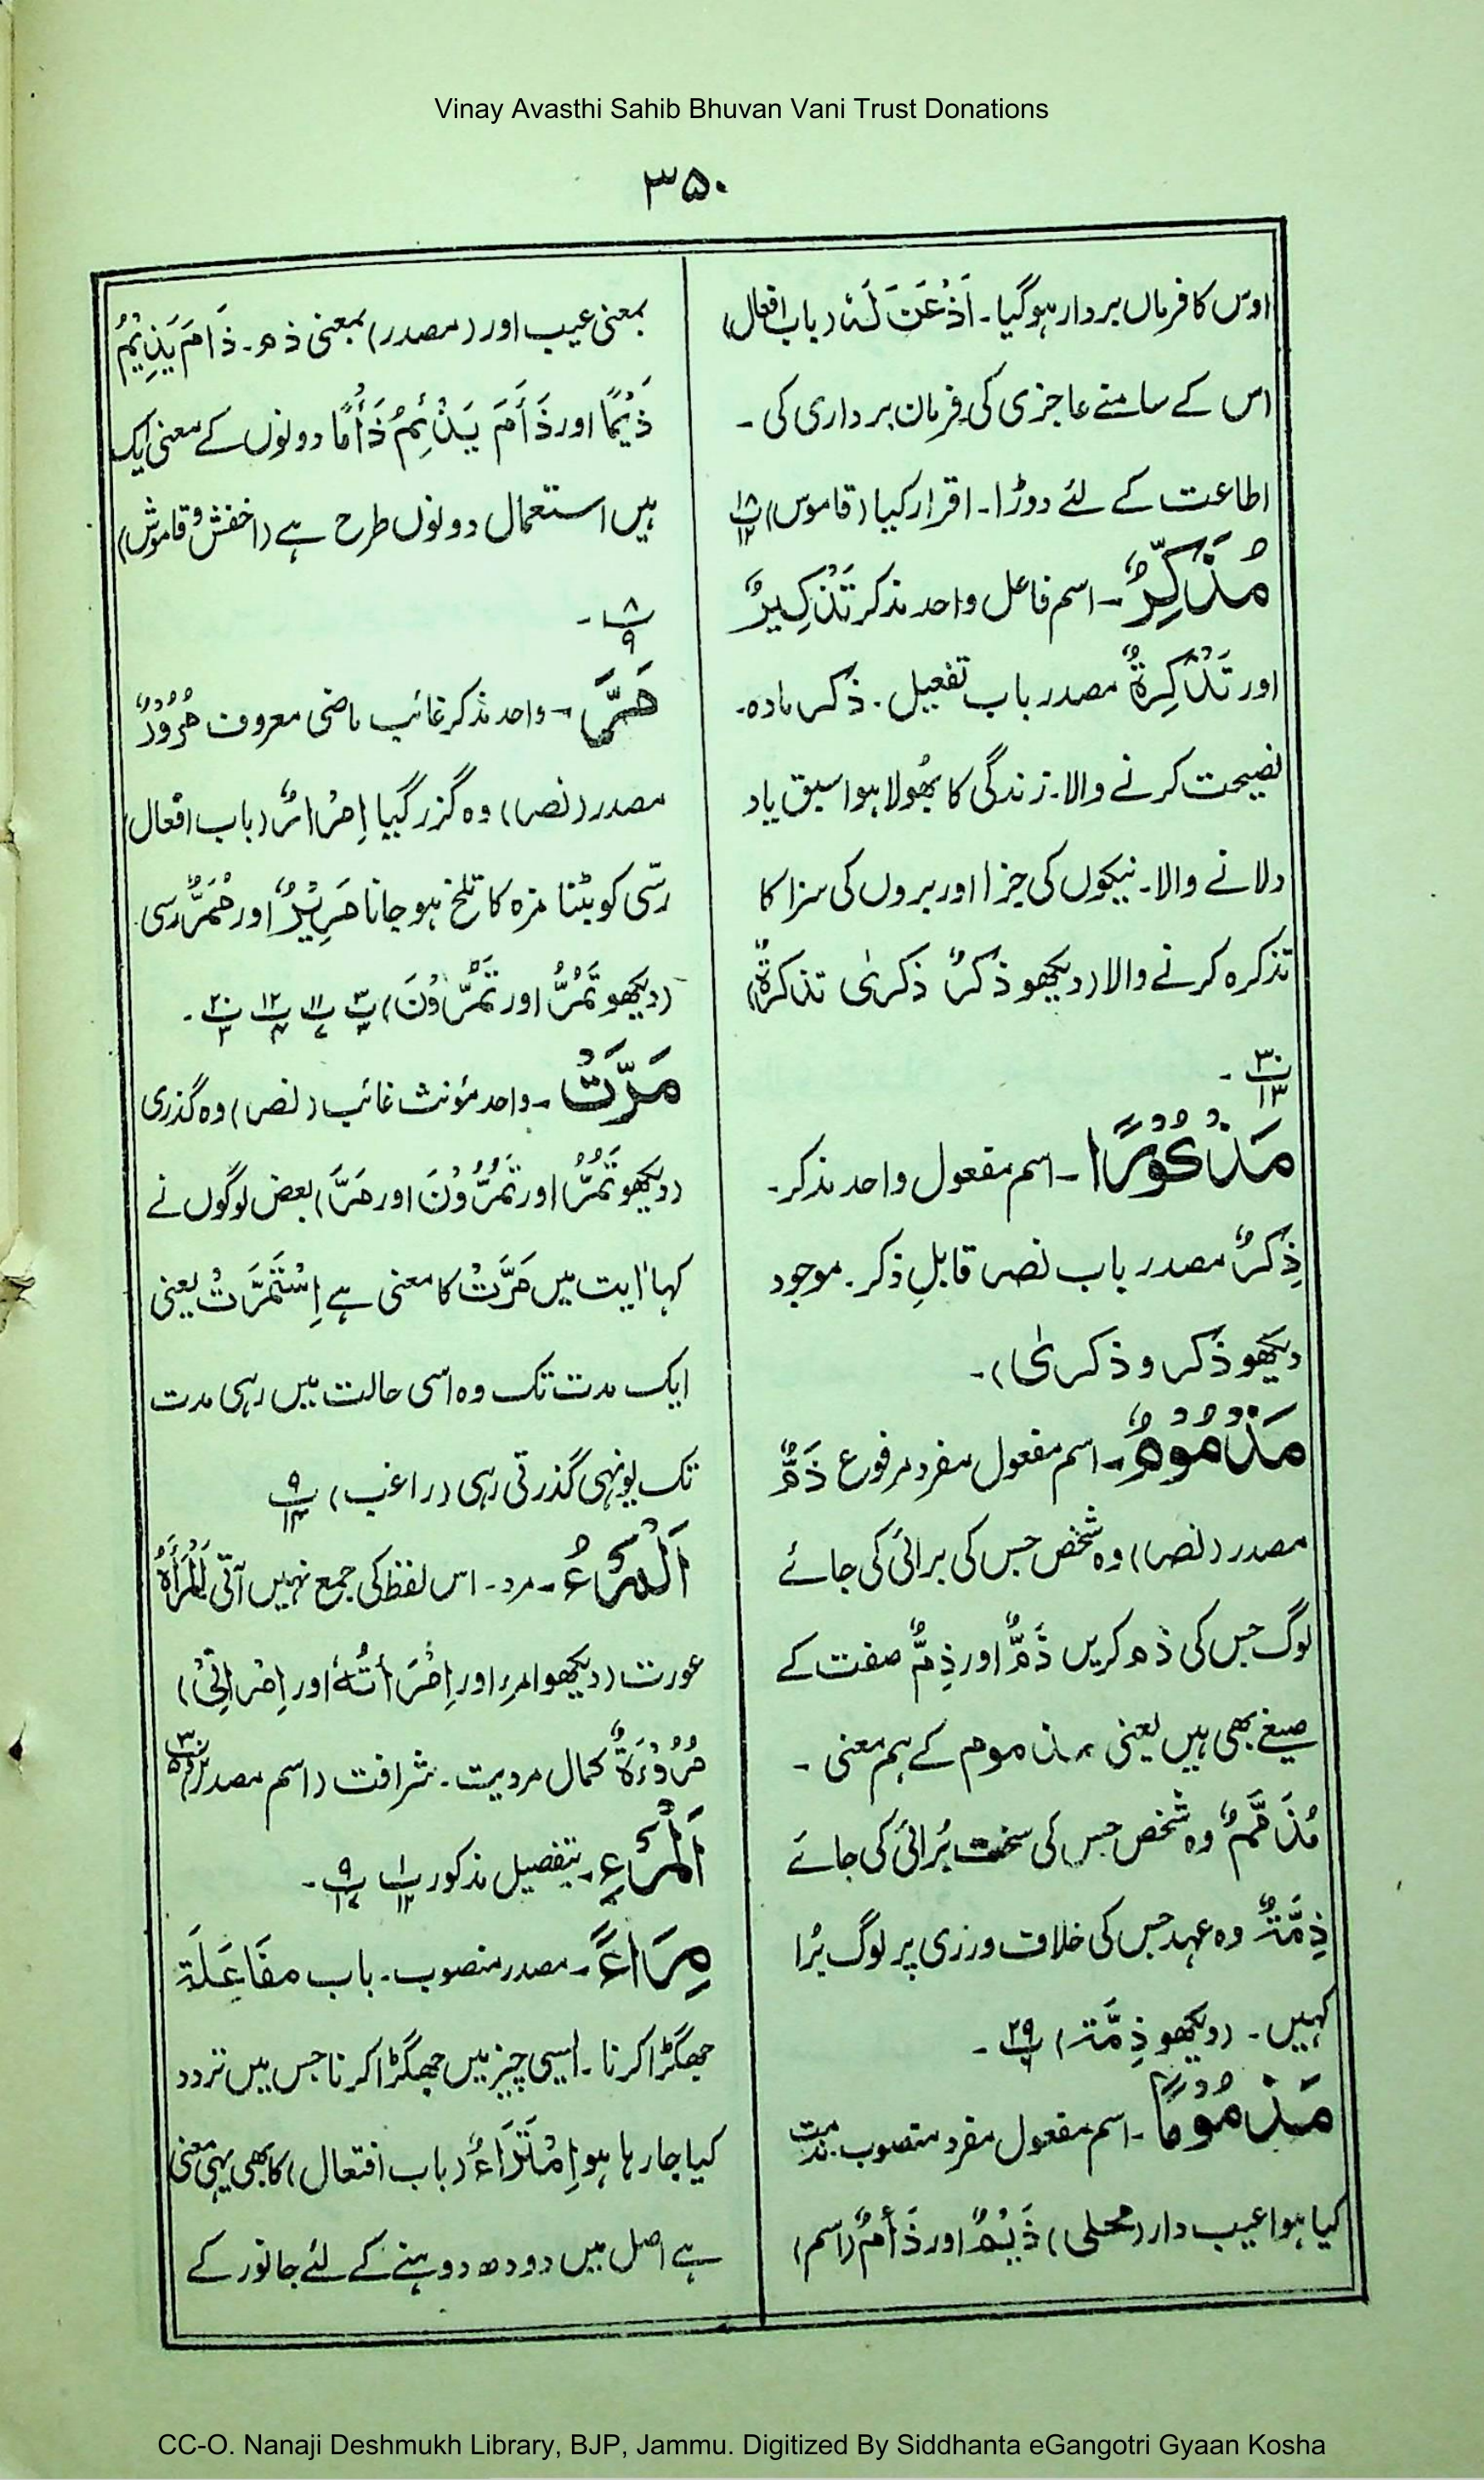 Vinay Avasthi Sahib Bhuvan Vani Trust Donations
۳۵۰
اوس کا فرماں بردار ہوگیا۔ اَذْعَنَ لَہٗ (باب افعال)
اس کے سامنے عاجزی کی فرمان برداری کی ۔
اطاعت کے لئے دوڑا۔ اقرار کیا (قاموس) ۱۸/۱۲
مُذَکِّرٌ۔ اسم فاعل واحد مذکر تَذْکِیرٌ
اور تَذْکِرَةٌ مصدر باب تفعیل ۔ ذکر مادہ۔
نصیحت کرنے والا۔ زندگی کا بھُولا ہوا سبق یاد
دلانے والا۔ نیکوں کی جزا اور بروں کی سزا کا
تذکرہ کرنے والا (دیکھو ذکرٌ ذکریٰ تذکرةٌ)
۳۰/۱۳ ۔
مَذْکُوْرًا ۔ اسم مفعول واحد مذکر۔
ذِکرٌ مصدر باب نصر قابلِ ذکر۔ موجود
دیکھو ذکر و ذکریٰ)۔
مَذْمُوْمٌ۔ اسم مفعول مفرد مرفوع ذَمٌّ
مصدر (نصر) وہ شخص جس کی برائی کی جائے
لوگ جس کی ذم کریں ذَمٌّ اور ذِمٌّ صفت کے
صیغے بھی ہیں یعنی مذموم کے ہم معنی ۔
مُذَمَّمٌ وہ شخص جس کی سخت بُرائی کی جائے
ذِمَّةٌ وہ عہد جس کی خلاف ورزی پر لوگ بُرا
کہیں۔ (دیکھو ذِمَّة) ۲۹ ۔
مَذْمُوْمًا ۔ اسم مفعول مفرد منصوب۔ مذمت
کیا ہوا عیب دار (محلی) ذَیْمٌ اور ذَأْمٌ (اسم)
بمعنی عیب اور (مصدر) بمعنی ذم۔ ذَامَ یَذِیْمُ
ذَیْمًا اور ذَأَمَ یَذْئِمُ ذَأْمًا دونوں کے معنی ایک
ہیں استعمال دونوں طرح ہے (اخفش و قاموس)
۸/۹ ۔
مَرَّ ۔ واحد مذکر غائب ماضی معروف مُرُوْرٌ
مصدر (نصر) وہ گزر گیا اِمْرَارٌ (باب افعال)
رسّی کو بٹنا مزہ کا تلخ ہو جانا مَرِیْرٌ اور مُمَرٌّ رسی
(دیکھو تَمُرُّ اور تَمُرُّوْنَ) ۳ ۱۱ ۱۲ ۲۰ ۔
مَرَّتْ ۔ واحد مؤنث غائب (نصر) وہ گذری
(دیکھو تَمُرُّ اور تَمُرُّوْنَ اور مَرَّ) بعض لوگوں نے
کہا آیت میں مَرَّتْ کا معنی ہے اِسْتَمَرَّتْ یعنی
ایک مدت تک وہ اسی حالت میں رہی مدت
تک یونہی گذرتی رہی (راغب) ۹/۱۴
اَلْمَرْءُ ۔ مرد۔ اس لفظ کی جمع نہیں آتی اَلْمَرْأَةُ
عورت (دیکھو امرء اور اِمْرَأَتُہٗ اور اِمْرَاَتِیْ)
مُرُوْءَةٌ کمال مردیت۔ شرافت (اسم مصدر)
اَلْمَرْءِ ۔ بتفصیل مذکور ۱/۱۲ ۹/۱۷ ۔
مِرَاءً ۔ مصدر منصوب۔ باب مفَاعَلَة
جھگڑا کرنا ۔ ایسی چیز میں جھگڑا کرنا جس میں تردد
کیا جا رہا ہو اِمْتَرَاءٌ (باب افتعال) کا بھی یہی معنی
ہے اصل میں دودھ دوہنے کے لئے جانور کے
CC-O. Nanaji Deshmukh Library, BJP, Jammu. Digitized By Siddhanta eGangotri Gyaan Kosha